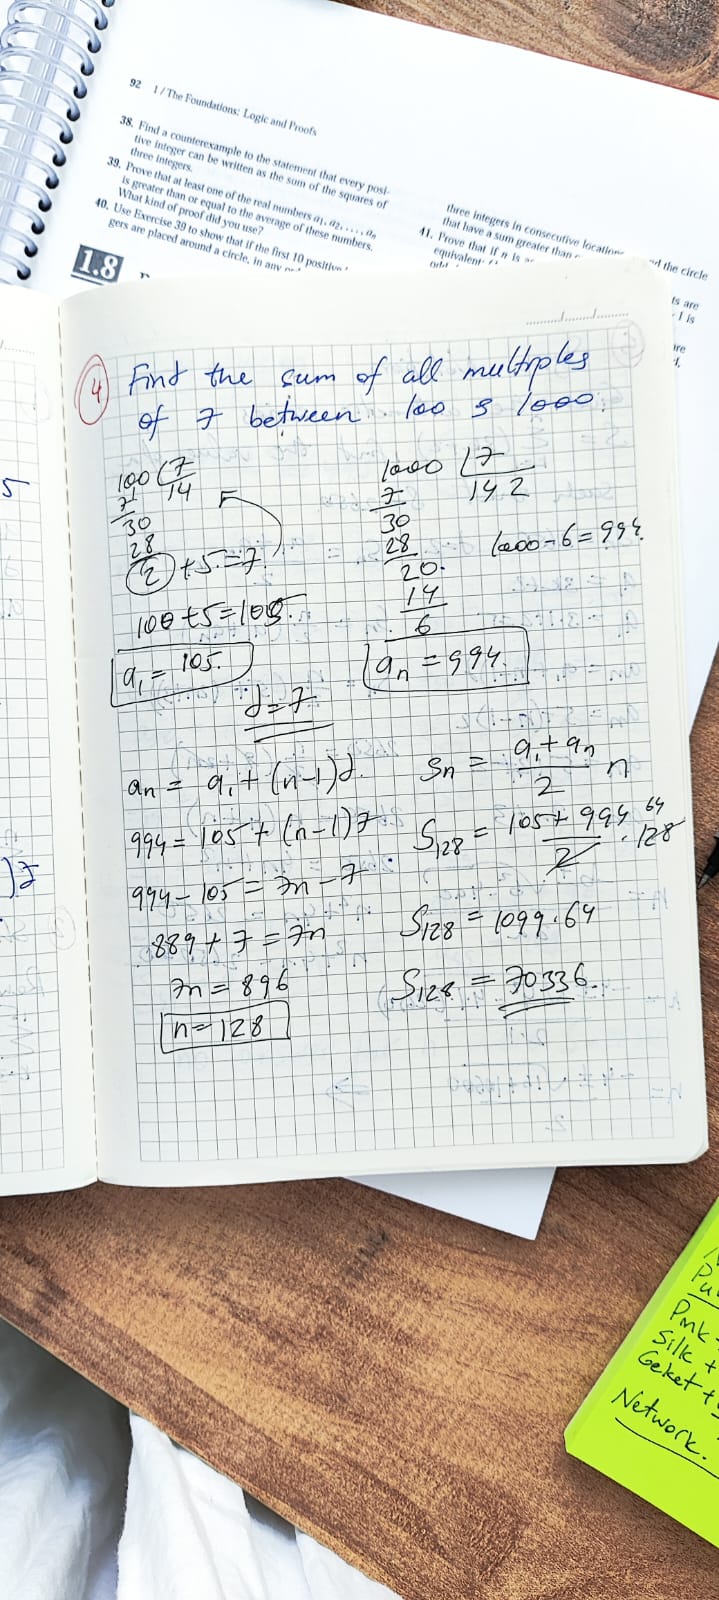 92 1 / The Foundations: Logic and Proofs
38. Find a counterexample to the statement that every posi-
tive integer can be written as the sum of the squares of
three integers.
39. Prove that at least one of the real numbers a₁, a₂, ..., aₙ
is greater than or equal to the average of these numbers.
What kind of proof did you use?
40. Use Exercise 39 to show that if the first 10 positive
gers are placed around a circle, in any
three integers in consecutive locations the circle
that have a sum greater than
41. Prove that if n is
equivalent:
1.8
④ Find the sum of all multiples
of 7 between 100 & 1000.
100 7
7 14
30
28
2 +5=7
100+5=105.
a₁ = 105.
1000 7
7 142
30
28
20.
14
6
1000-6=994.
aₙ = 994.
d=7
aₙ = a₁ + (n-1)d.
994 = 105 + (n-1)7
994 - 105 = 7n - 7
889 + 7 = 7n
7n = 896
n = 128
Sₙ = a₁ + aₙ / 2 n
S₁₂₈ = 105 + 994 / 2 · 128 64
S₁₂₈ = 1099·64
S₁₂₈ = 70336.
5
)7
Pmk
Silk +
Geket +
Network.